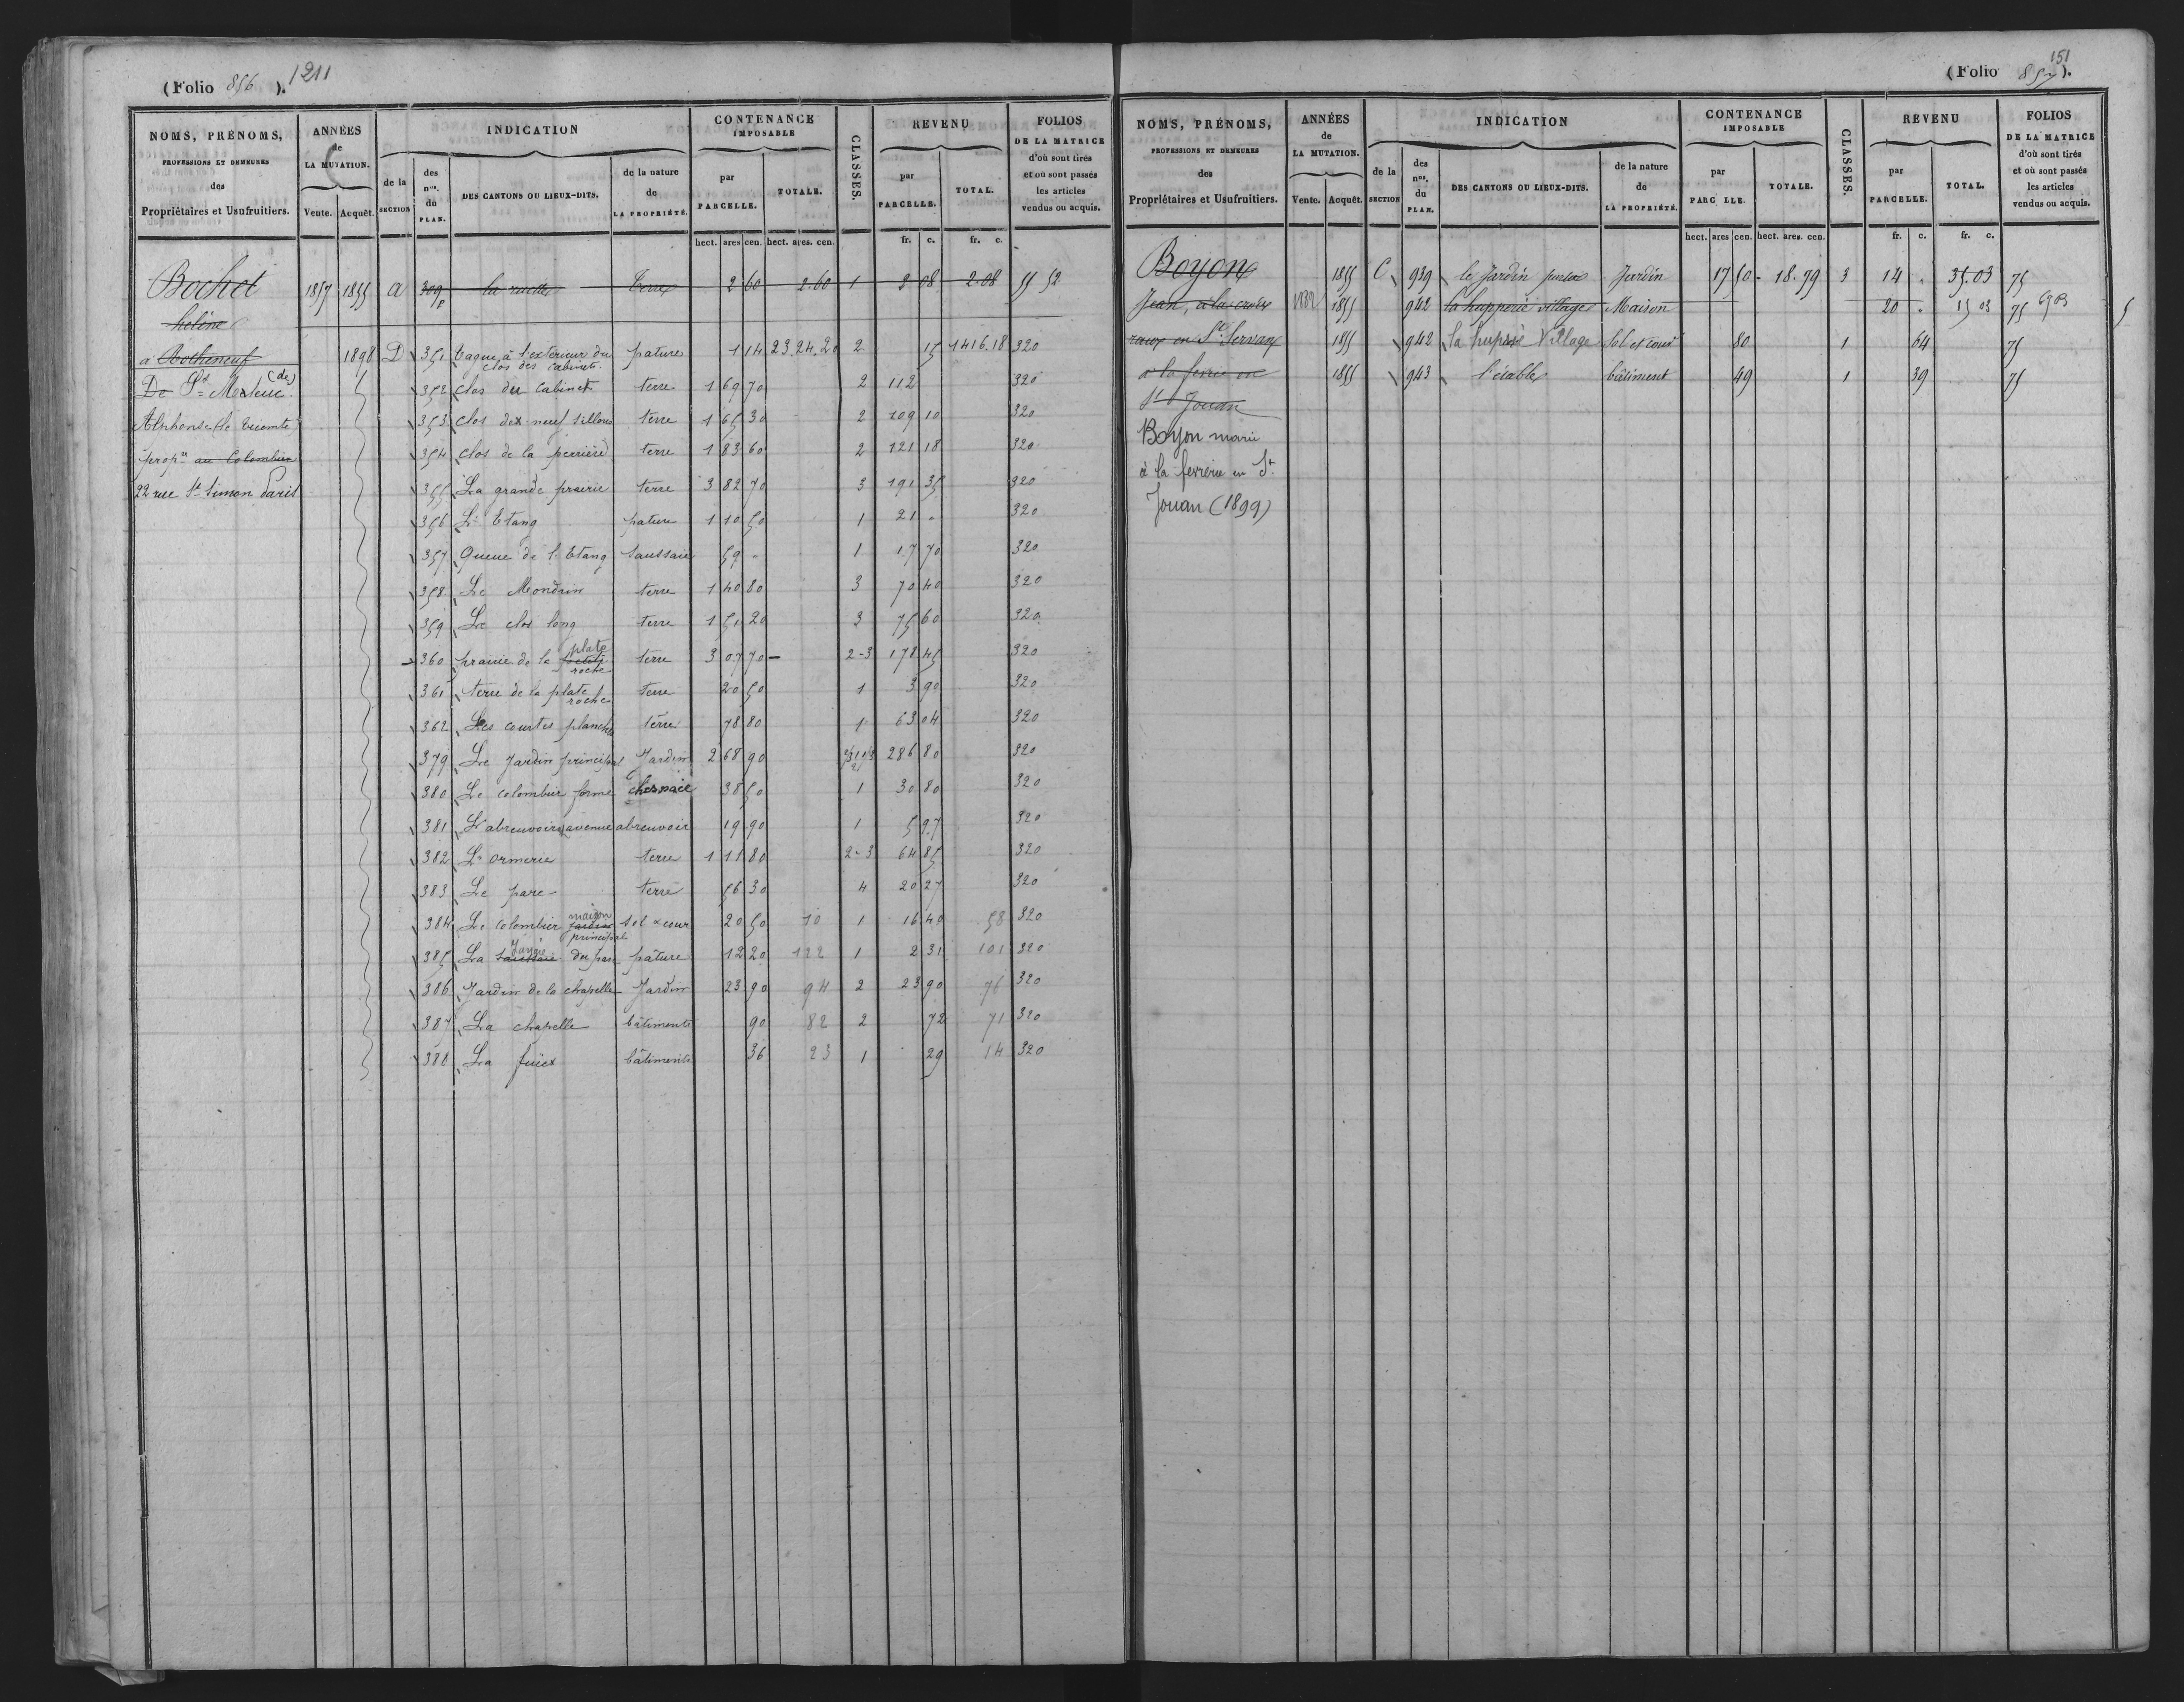 (Folio 856 ). 1211
NOMS, PRÉNOMS, PROFESSIONS ET DEMEURES des Propriétaires et Usufruitiers. ANNÉES de LA MUTATION. Vente. Acquêt. INDICATION de la SECTION des nos. du PLAN. DES CANTONS OU LIEUX-DITS. de la nature de LA PROPRIÉTÉ. CONTENANCE IMPOSABLE par PARCELLE. TOTALE. CLASSES. REVENU par PARCELLE. TOTAL. FOLIOS DE LA MATRICE d'où sont tirés et où sont passés les articles vendus ou acquis.
hect. ares cen. hect. ares. cen. fr. c. fr. c.
Bochet 1857 1855 a 309p la ruette terre 2 60 2.60 1 2 08 2.08 55 52
hélène
a Rotheneuf 1898 D 351 vague, à l'extérieur du clos des cabinets. pature 1 14 23.24.20 2 15 1416.18 320
De St Meleuc (de) 352 clos du Cabinet terre 1 69 70 2 112 320
Alphonse (le vicomte) 353 clos dex neuf sillons terre 1 65 30 2 109 10 320
propre au Colombier 354 clos de la perrière terre 1 83 60 2 121 18 320
22 rue St Simon Paris 355 La grande prairie terre 3 82 70 3 191 35 320
356 L'Etang pature 1 10 50 1 21 . 320
357 Queue de l'Etang saussaie 59 " 1 17 70 320
358 Le Mondrin terre 1 40 80 3 70 40 320
359 Le clos long terre 1 51 20 3 75 60 320
360 prairie de la plate roche terre 3 07 70 2-3 178 45 320
361 terre de la plate roche terre 20 50 1 3 90 320
362 Les courtes planches terre 78 80 1 63 04 320
379 Le Jardin principal Jardin 2 68 90 286 80 320
380 Le colombier ferme 38 50 1 30 80 320
381 L'abreuvoir avenue abreuvoir 19 90 1 5 97 320
382 L'ormerie terre 1 11 80 2-3 64 85 320
383 Le parc terre 56 30 4 20 27 320
384 Le colombier maison jardin principal sol & cour 20 50 10 1 16 40 58 320
385 La saussaie du parc pâture 12 20 122 1 2 31 101 320
386 Jardin de la chapelle Jardin 23 90 94 2 23 90 76 320
387 La chapelle bâtiments 90 82 2 72 71 320
388 La fuiee bâtiments 36 23 1 29 14 320
151
(Folio 857).
NOMS, PRÉNOMS, PROFESSIONS ET DEMEURES des Propriétaires et Usufruitiers. ANNÉES de LA MUTATION. Vente. Acquêt. INDICATION de la SECTION des nos. du PLAN. DES CANTONS OU LIEUX-DITS. de la nature de LA PROPRIÉTÉ. CONTENANCE IMPOSABLE par PARC LLE. TOTALE. CLASSES. REVENU par PARCELLE. TOTAL. FOLIOS DE LA MATRICE d'où sont tirés et où sont passés les articles vendus ou acquis.
hect. ares cen. hect. ares. cen. fr. c. fr. c.
Boyon 1855 C 939 le Jardin Jardin 17 50 18.79 3 14 . 35.03 75
Jean, à la croix 1882 1855 942 la hupperie village Maison 20 . 15 03 75
en St Servan 1855 942 la huperie Village Sol et cour 80 1 64 75
a la ferrie en 1855 943 l'étable bâtiment 49 1 39 75
St Jouan
Boyon marie
à la ferrerie en St
Jouan (1899)